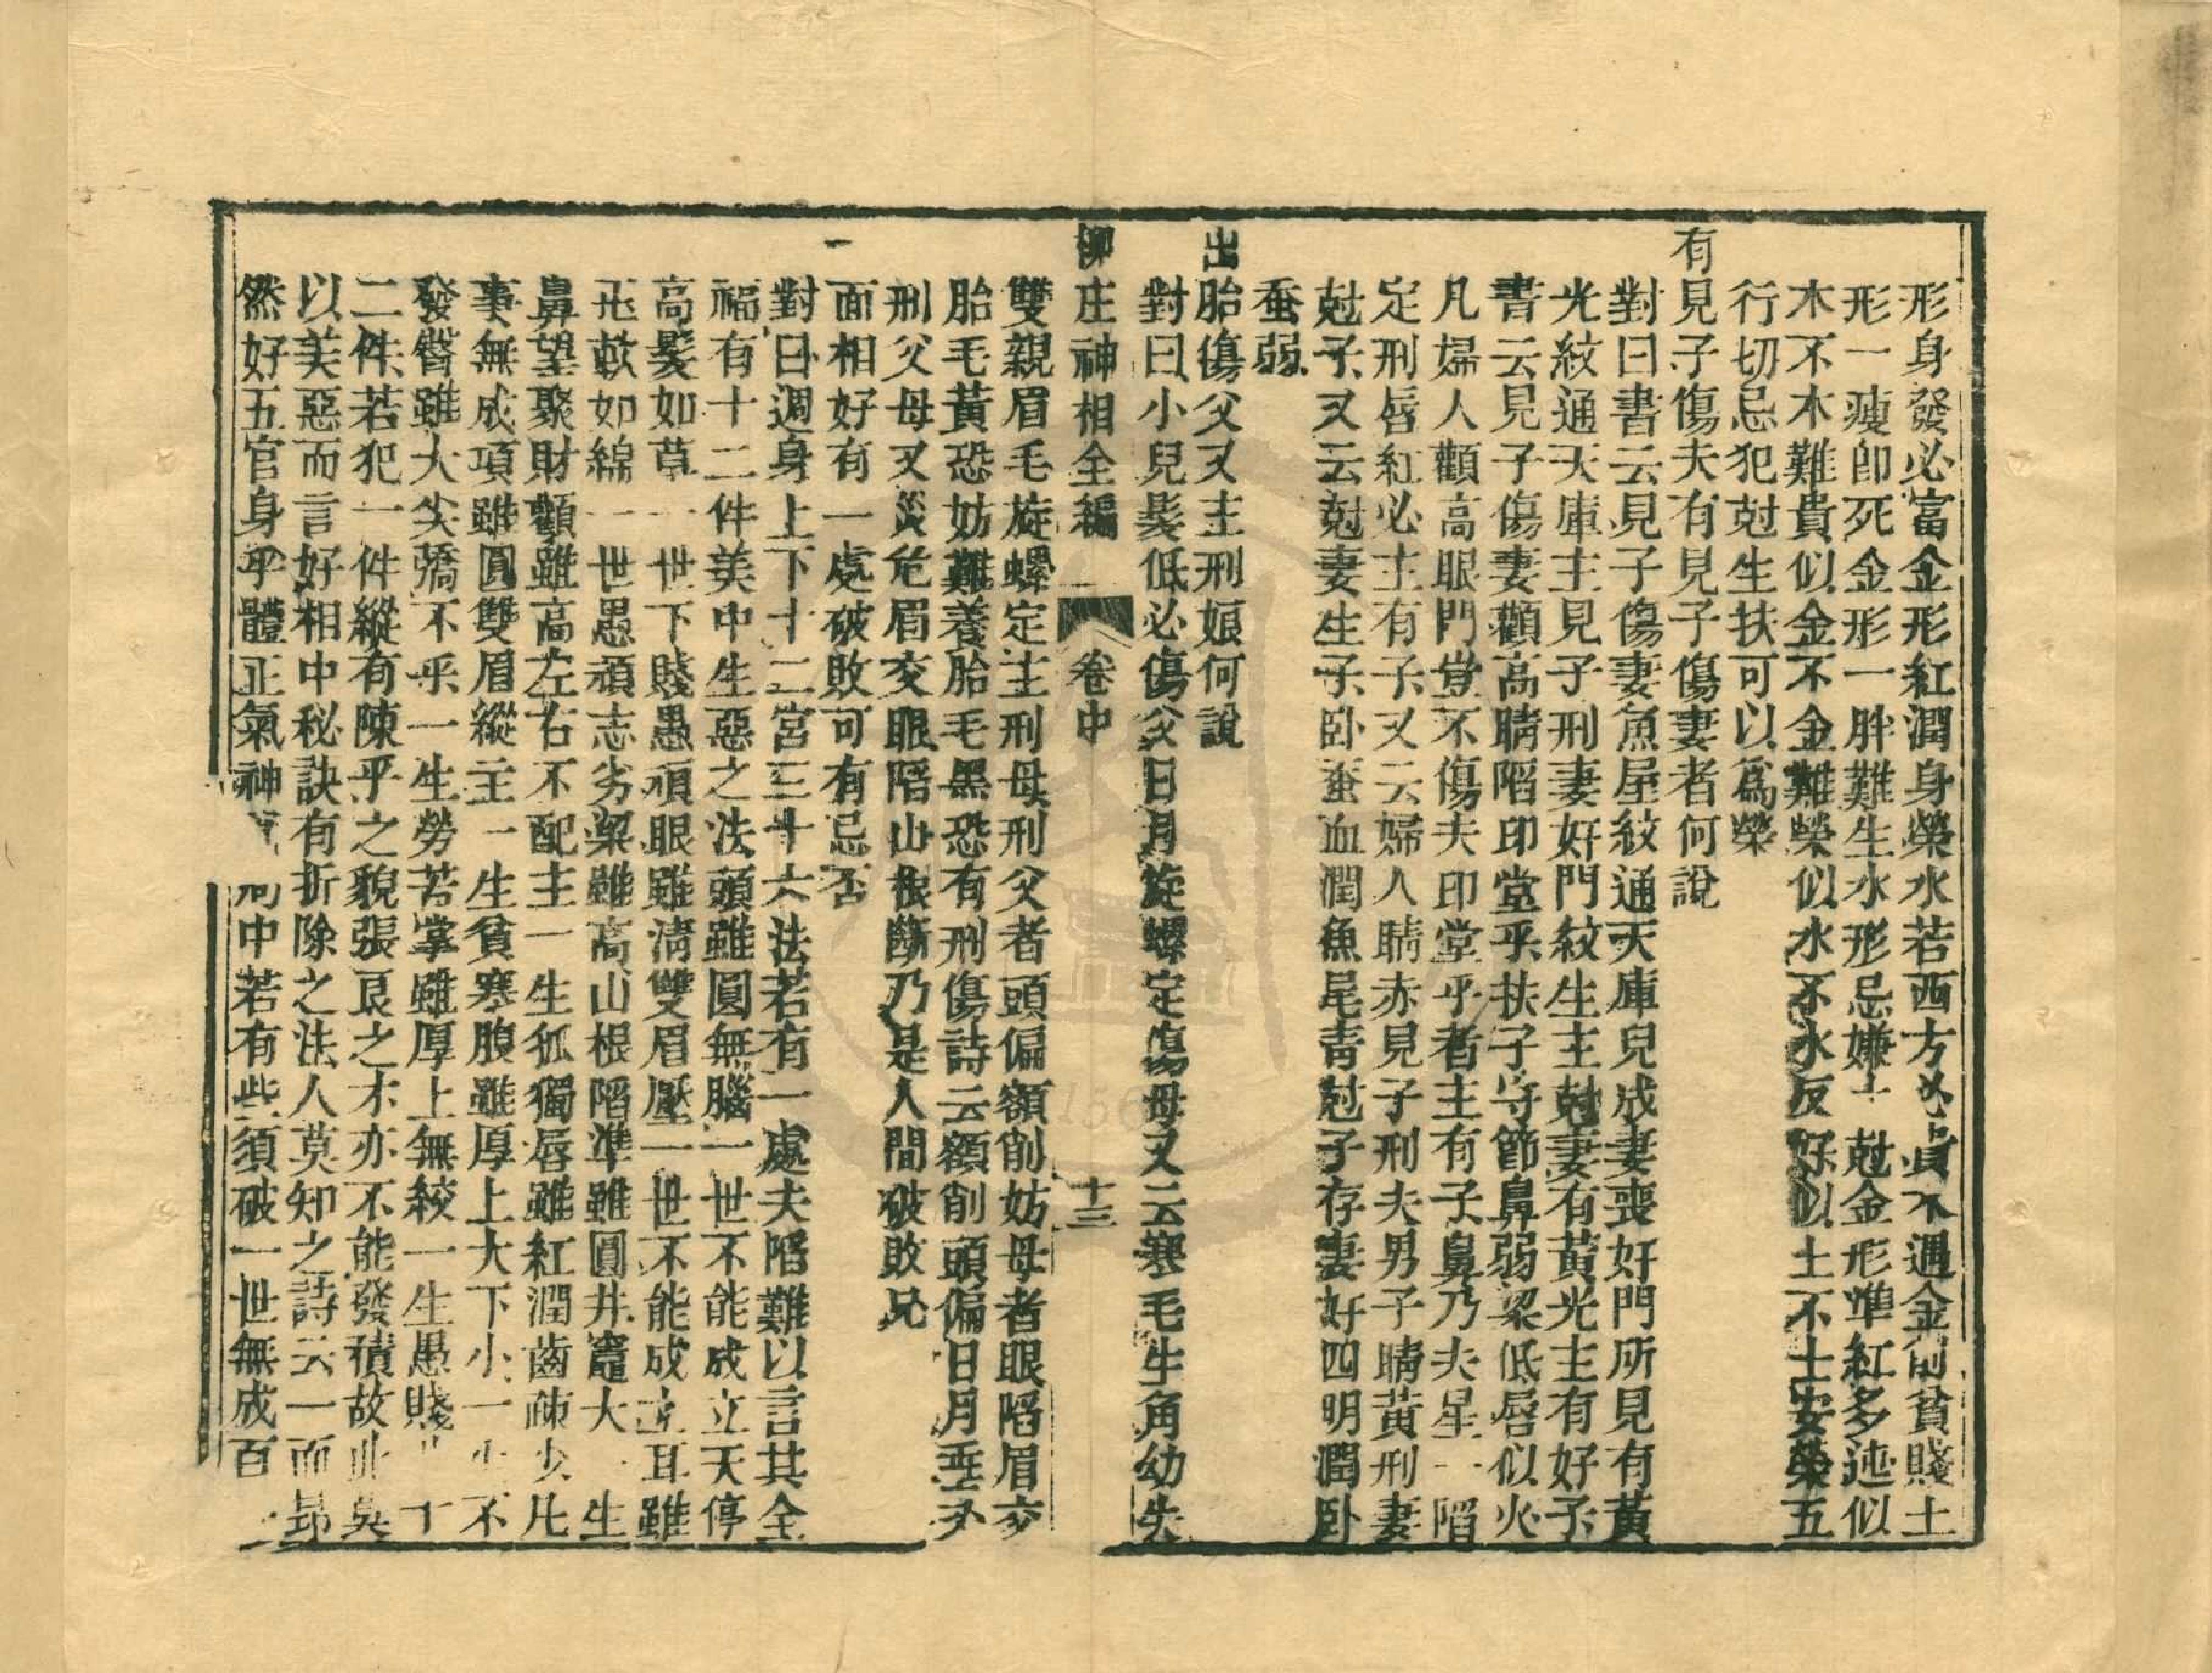 形身發必富金形紅潤身榮水若西方必貴不遇金削貧賤土
形一瘦卽死金形一胖難生水形忌嫌土尅金形準紅多迍似
木不木難貴似金不金難榮似水不水反好似土不土安榮五
行切忌犯尅生扶可以爲榮
有見子傷夫有見子傷妻者何說
對曰書云見子傷妻魚尾紋通天庫兒成妻喪好門所見有黃
光紋通天庫主見子刑妻好門紋生主尅妻有黃光主有好子
書云見子傷妻顴高睛陷印堂平扶子守節鼻弱梁低唇似火
凡婦人顴高眼門堂不傷夫印堂平者主有子鼻乃夫星一陷
定刑唇紅必主有子又云婦人睛赤見子刑夫男子睛黃刑妻
尅子又云尅妻生子卧蚕血潤魚尾靑尅子存妻好四明潤卧
蚕弱
出胎傷父又主刑娘何說
對曰小兒髮低必傷父日月旋螺定傷母又云寒毛生角幼失
柳庄神相全編 卷中 十三
雙親眉毛旋螺定主刑母刑父者頭偏額削妨母者眼陷眉交
胎毛黃恐妨難養胎毛黑恐有刑傷詩云額削頭偏日月垂多
刑父母又災危眉交眼陷山根斷乃是人間破敗兒
一面相好有一處破敗可有忌否
對曰週身上下十二宮三十六法若有一處夫陷難以言其全
福有十二件美中生惡之法頭雖圓無腦一世不能成立天停
高髮如草一世下賤愚頑眼雖淸雙眉壓一世不能成立耳雖
珎軟如綿一世愚頑志劣梁雖高山根陷準雖圓井竈大一生
鼻望聚財顴雖高左右不配主一生孤獨唇雖紅潤齒疎少凡
事無成項雖圓雙眉縱主一生貧寒腹雖厚上大下小一生不
發臀雖大尖蹻不平一生勞苦掌雖厚上無紋一生愚賤十
二件若犯一件縱有陳平之貌張良之才亦不能發積故此吳
以美惡而言好相中秘訣有折除之法人莫知之詩云一而昂
然好五官身平體正氣神 何中若有些須破一世無成百